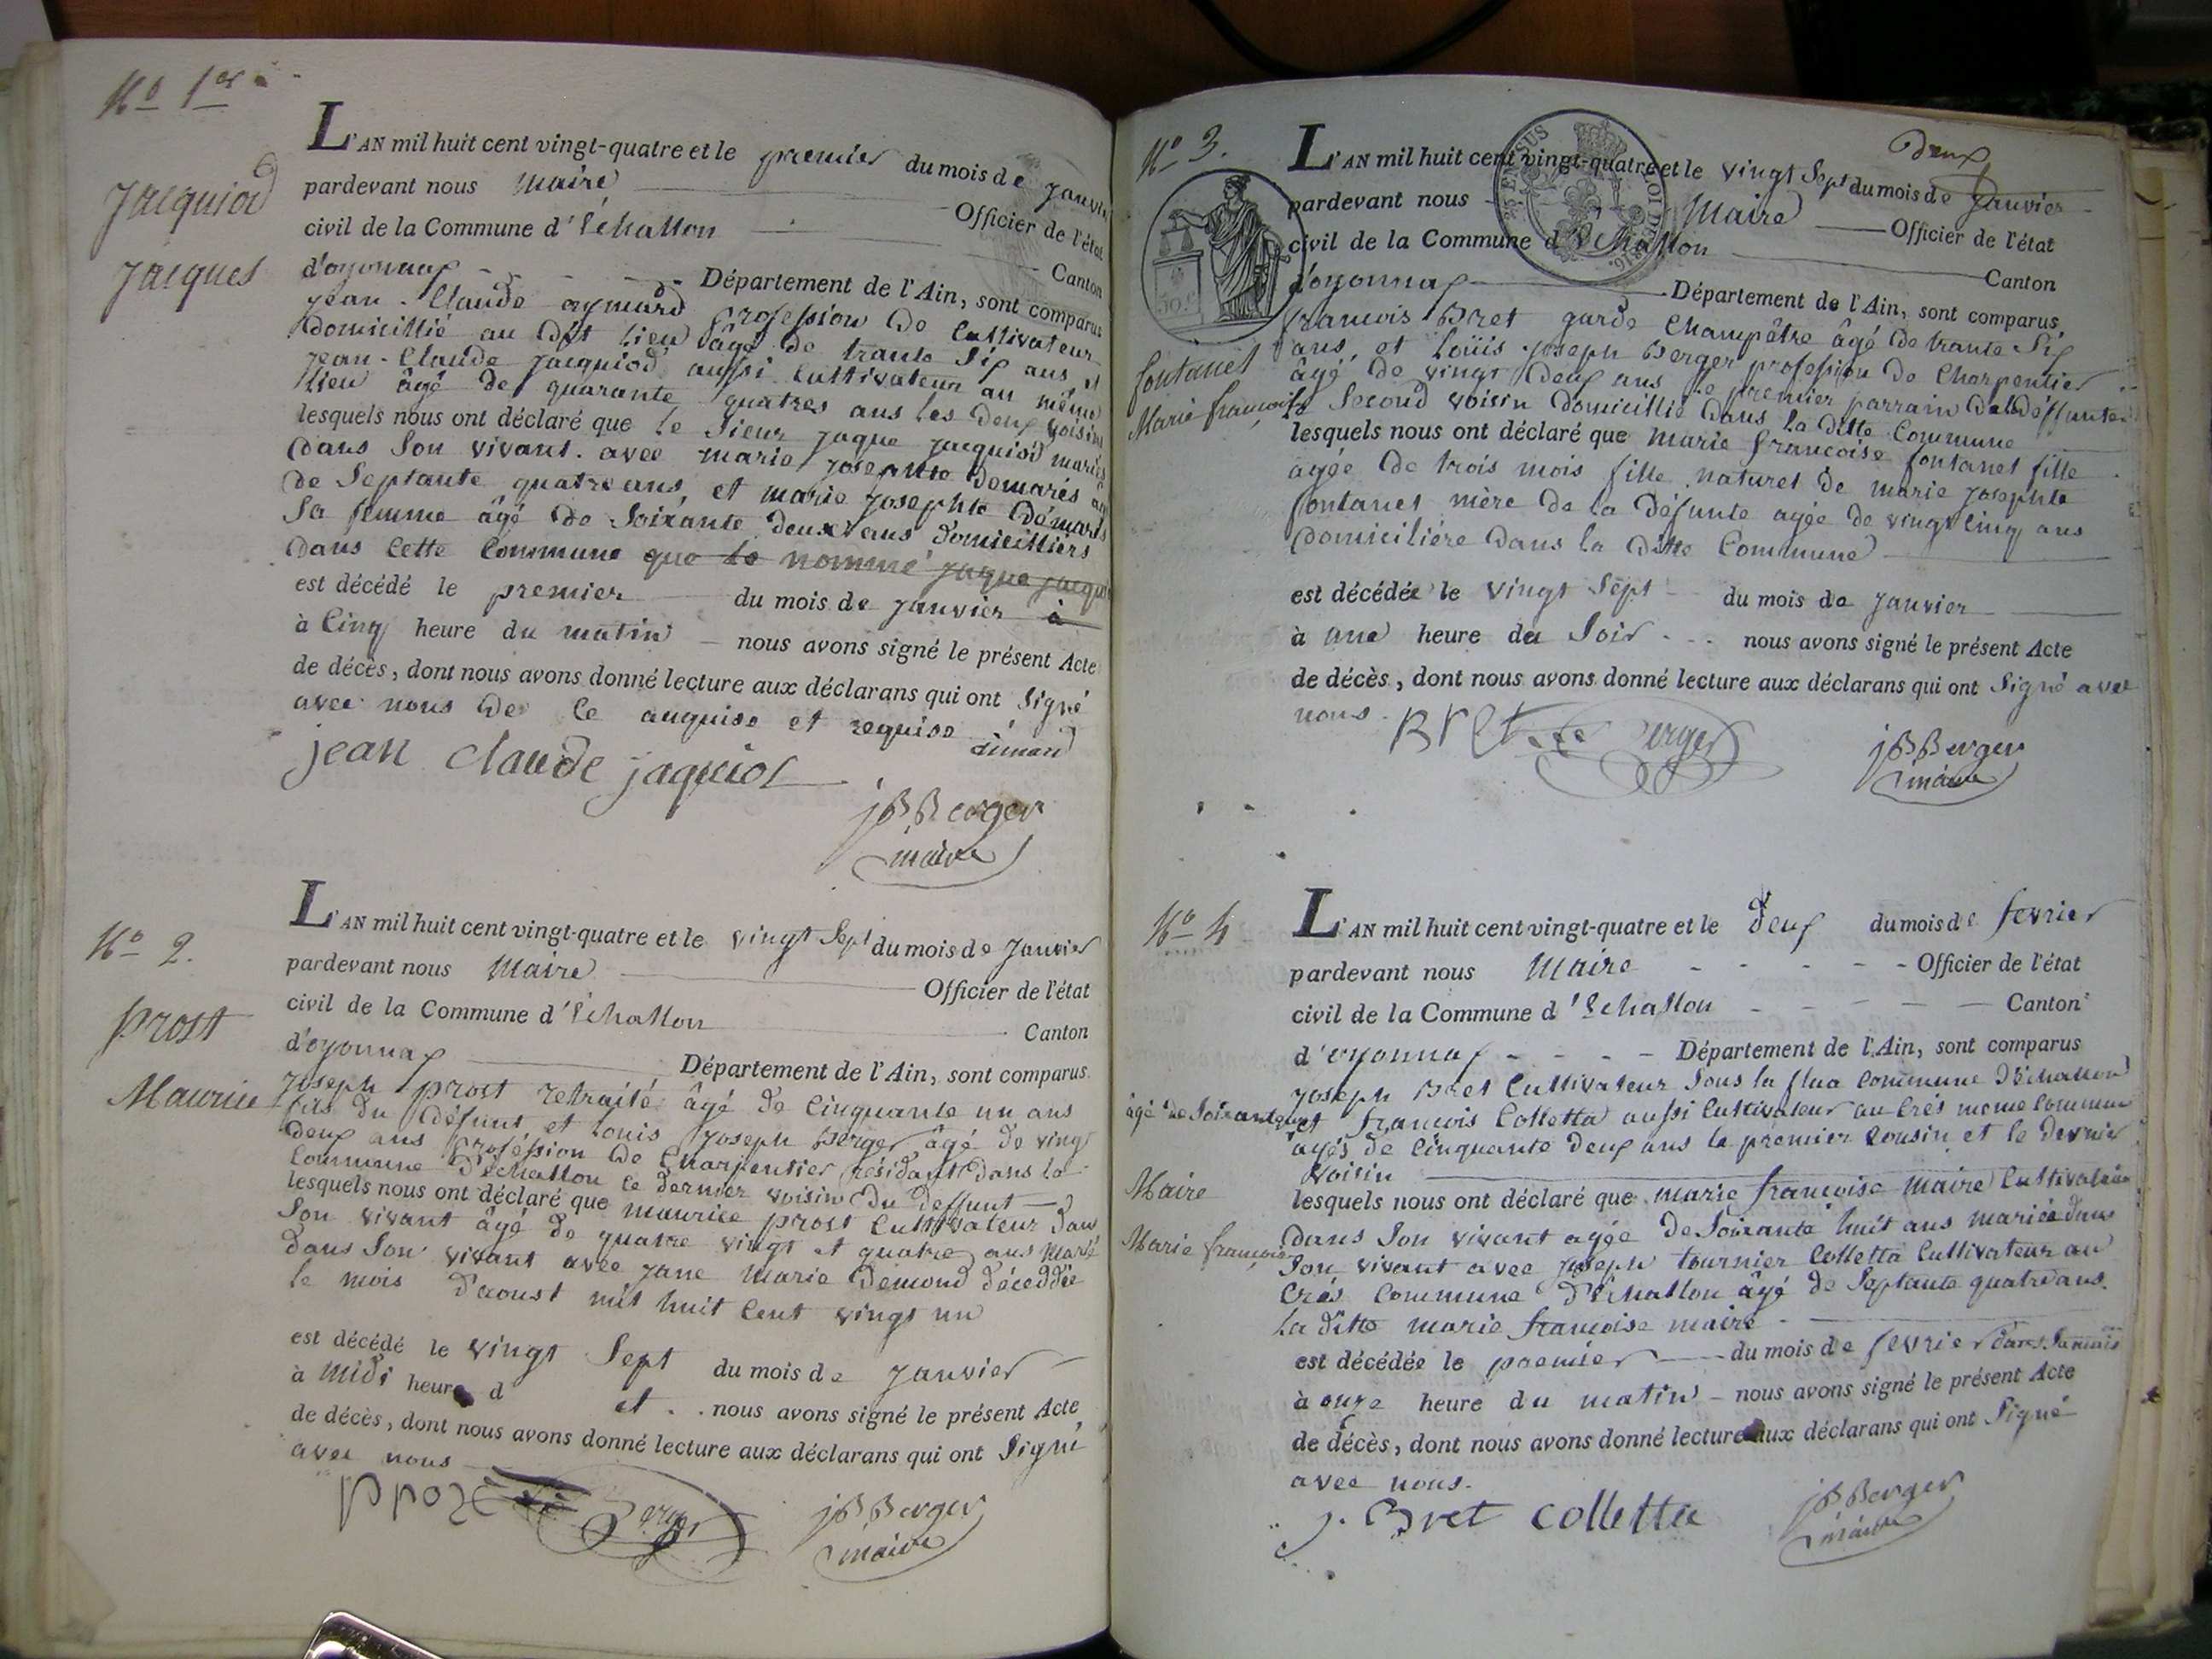 No 1er
Jacquiod
Jacques
L'AN mil huit cent vingt-quatre et le premier du mois de janvier
pardevant nous Maire Officier de l'état
civil de la Commune d'Échallon Canton
d'oyonnax Département de l'Ain, sont comparus
jean-Claude aymard profession de Cultivateur
domicillié au dit lieu âgé de trante six ans et
jean-Claude jacquiod aussi Cultivateur au même
lieu âgé de quarante quatres ans les deux voisins
lesquels nous ont déclaré que le sieur jaque jacquiod mariés
dans son vivant. avec marie josephte démarés
de septante quatre ans, et marie josephte démarés
sa femme âgé de soixante deux ans domicilliers
dans cette Commune que le nommé jaque jacqui
est décédé le premier du mois de janvier à
à Cinq heure du matin nous avons signé le présent Acte
de décès, dont nous avons donné lecture aux déclarans qui ont signé
avec nous de ce anquise et requise
aimard
jean claude jaquiot
jBBerger
maire
No 2.
prost
Maurice
L'AN mil huit cent vingt-quatre et le vingt sept du mois de janvier
pardevant nous Maire Officier de l'état
civil de la Commune d'Échallon Canton
d'oyonnax Département de l'Ain, sont comparus
joseph prost retraité âgé de Cinquante un ans
fils du défunt et louis joseph Berger âgé de vingt
deux ans proféssion de Charpentier résidant dans la
Commune d'échallon le dernier voisin du deffunt
lesquels nous ont déclaré que maurice prost Cultivateur dans
son vivant âgé de quatre vingt et quatre ans marié
dans son vivant avec jane marie démond décéddée
le mois d'aoust mil huit cent vingt un
est décédé le vingt sept du mois de janvier
à midi heure d et nous avons signé le présent Acte
de décès, dont nous avons donné lecture aux déclarans qui ont signé
avec nous
Berger
jBBerger
maire
No 3.
fontanet
Marie françoise
deux
L'AN mil huit cent vingt-quatre et le vingt sept du mois de janvier
pardevant nous Maire Officier de l'état
civil de la Commune d'Échallon Canton
d'oyonnax Département de l'Ain, sont comparus,
francois Bret garde Champêtre âgé de trante six
ans et loüis joseph Berger profession de Charpentier
âgé de vingt deux ans le premier parrain de la déffunte
le second voisin domicillié dans la ditte Commune
lesquels nous ont déclaré que marie francoise fontanet fille
agée de trois mois fille naturel de marie josephte
fontanet mère de la défunte agée de vingt cinq ans
domiciliére dans la ditte Commune
est décédée le vingt sept du mois de janvier
à une heure du soir nous avons signé le présent Acte
de décès, dont nous avons donné lecture aux déclarans qui ont signé avec
nous.
Bret Berger
jBBerger
maire
No 4
âgé de soixante
Maire
Marie françoise
L'AN mil huit cent vingt-quatre et le deux du mois de fevrier
pardevant nous Maire Officier de l'état
civil de la Commune d'Échallon Canton
d'oyonnax Département de l'Ain, sont comparus
joseph Bret Cultivateur sous la flua Commune d'échallon
et francois Colletta aussi Cultivateur au Crés meme Commune
âgés de Cinquante deux ans le premier Cousin et le dernier
voisin
lesquels nous ont déclaré que marie francoise maire Cultivatrice
dans son vivant agée de soixante huit ans mariée dans
son vivant avec joseph tournier Colletta Cultivateur au
Crés Commune d'échallon âgé de septante quatre ans.
la ditte marie francoise maire
est décédée le premier du mois de fevrier
à onze heure du matin nous avons signé le présent Acte
de décès, dont nous avons donné lecture aux déclarans qui ont signé
avec nous.
j. Bret Colletta
jBBerger
maire